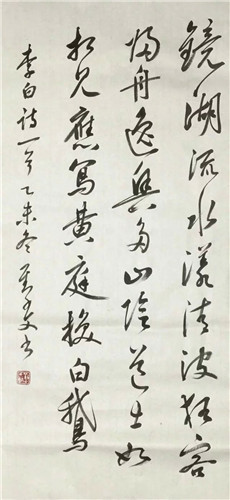 鏡湖流水漾清波狂客
歸舟逸興多山陰道士如
相見應寫黃庭換白鵝
李白詩一首乙未冬